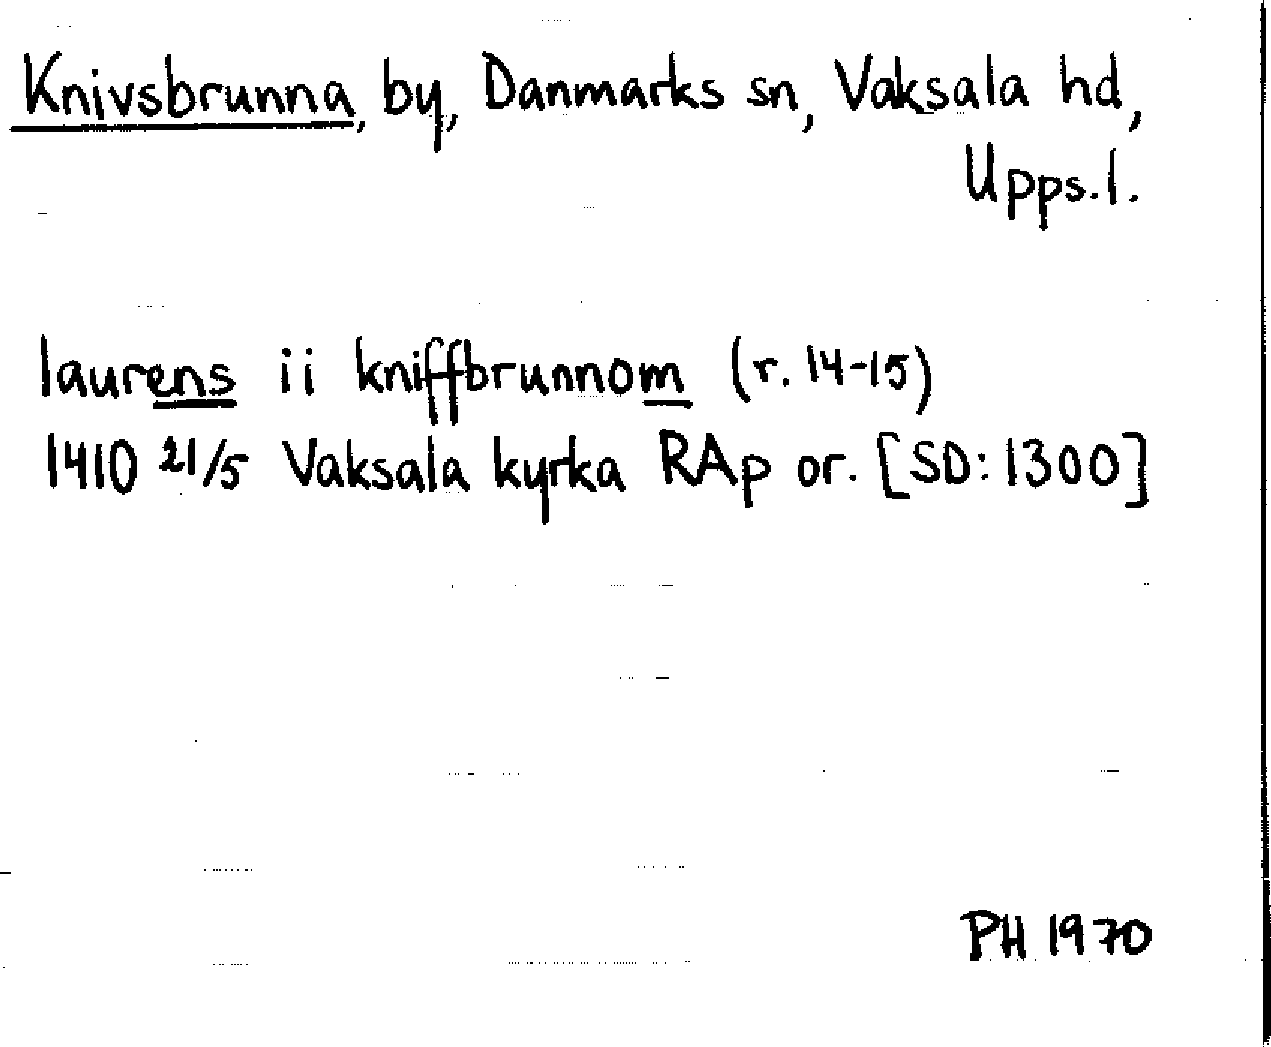 Knivsbrunna, by, Danmarks sn, Vaksala hd,
Upps.l.
laurens ii kniffbrunnom (r. 14-15)
1410 21/5 Vaksala kyrka RAp or. [SD: 1300]
PH 1970